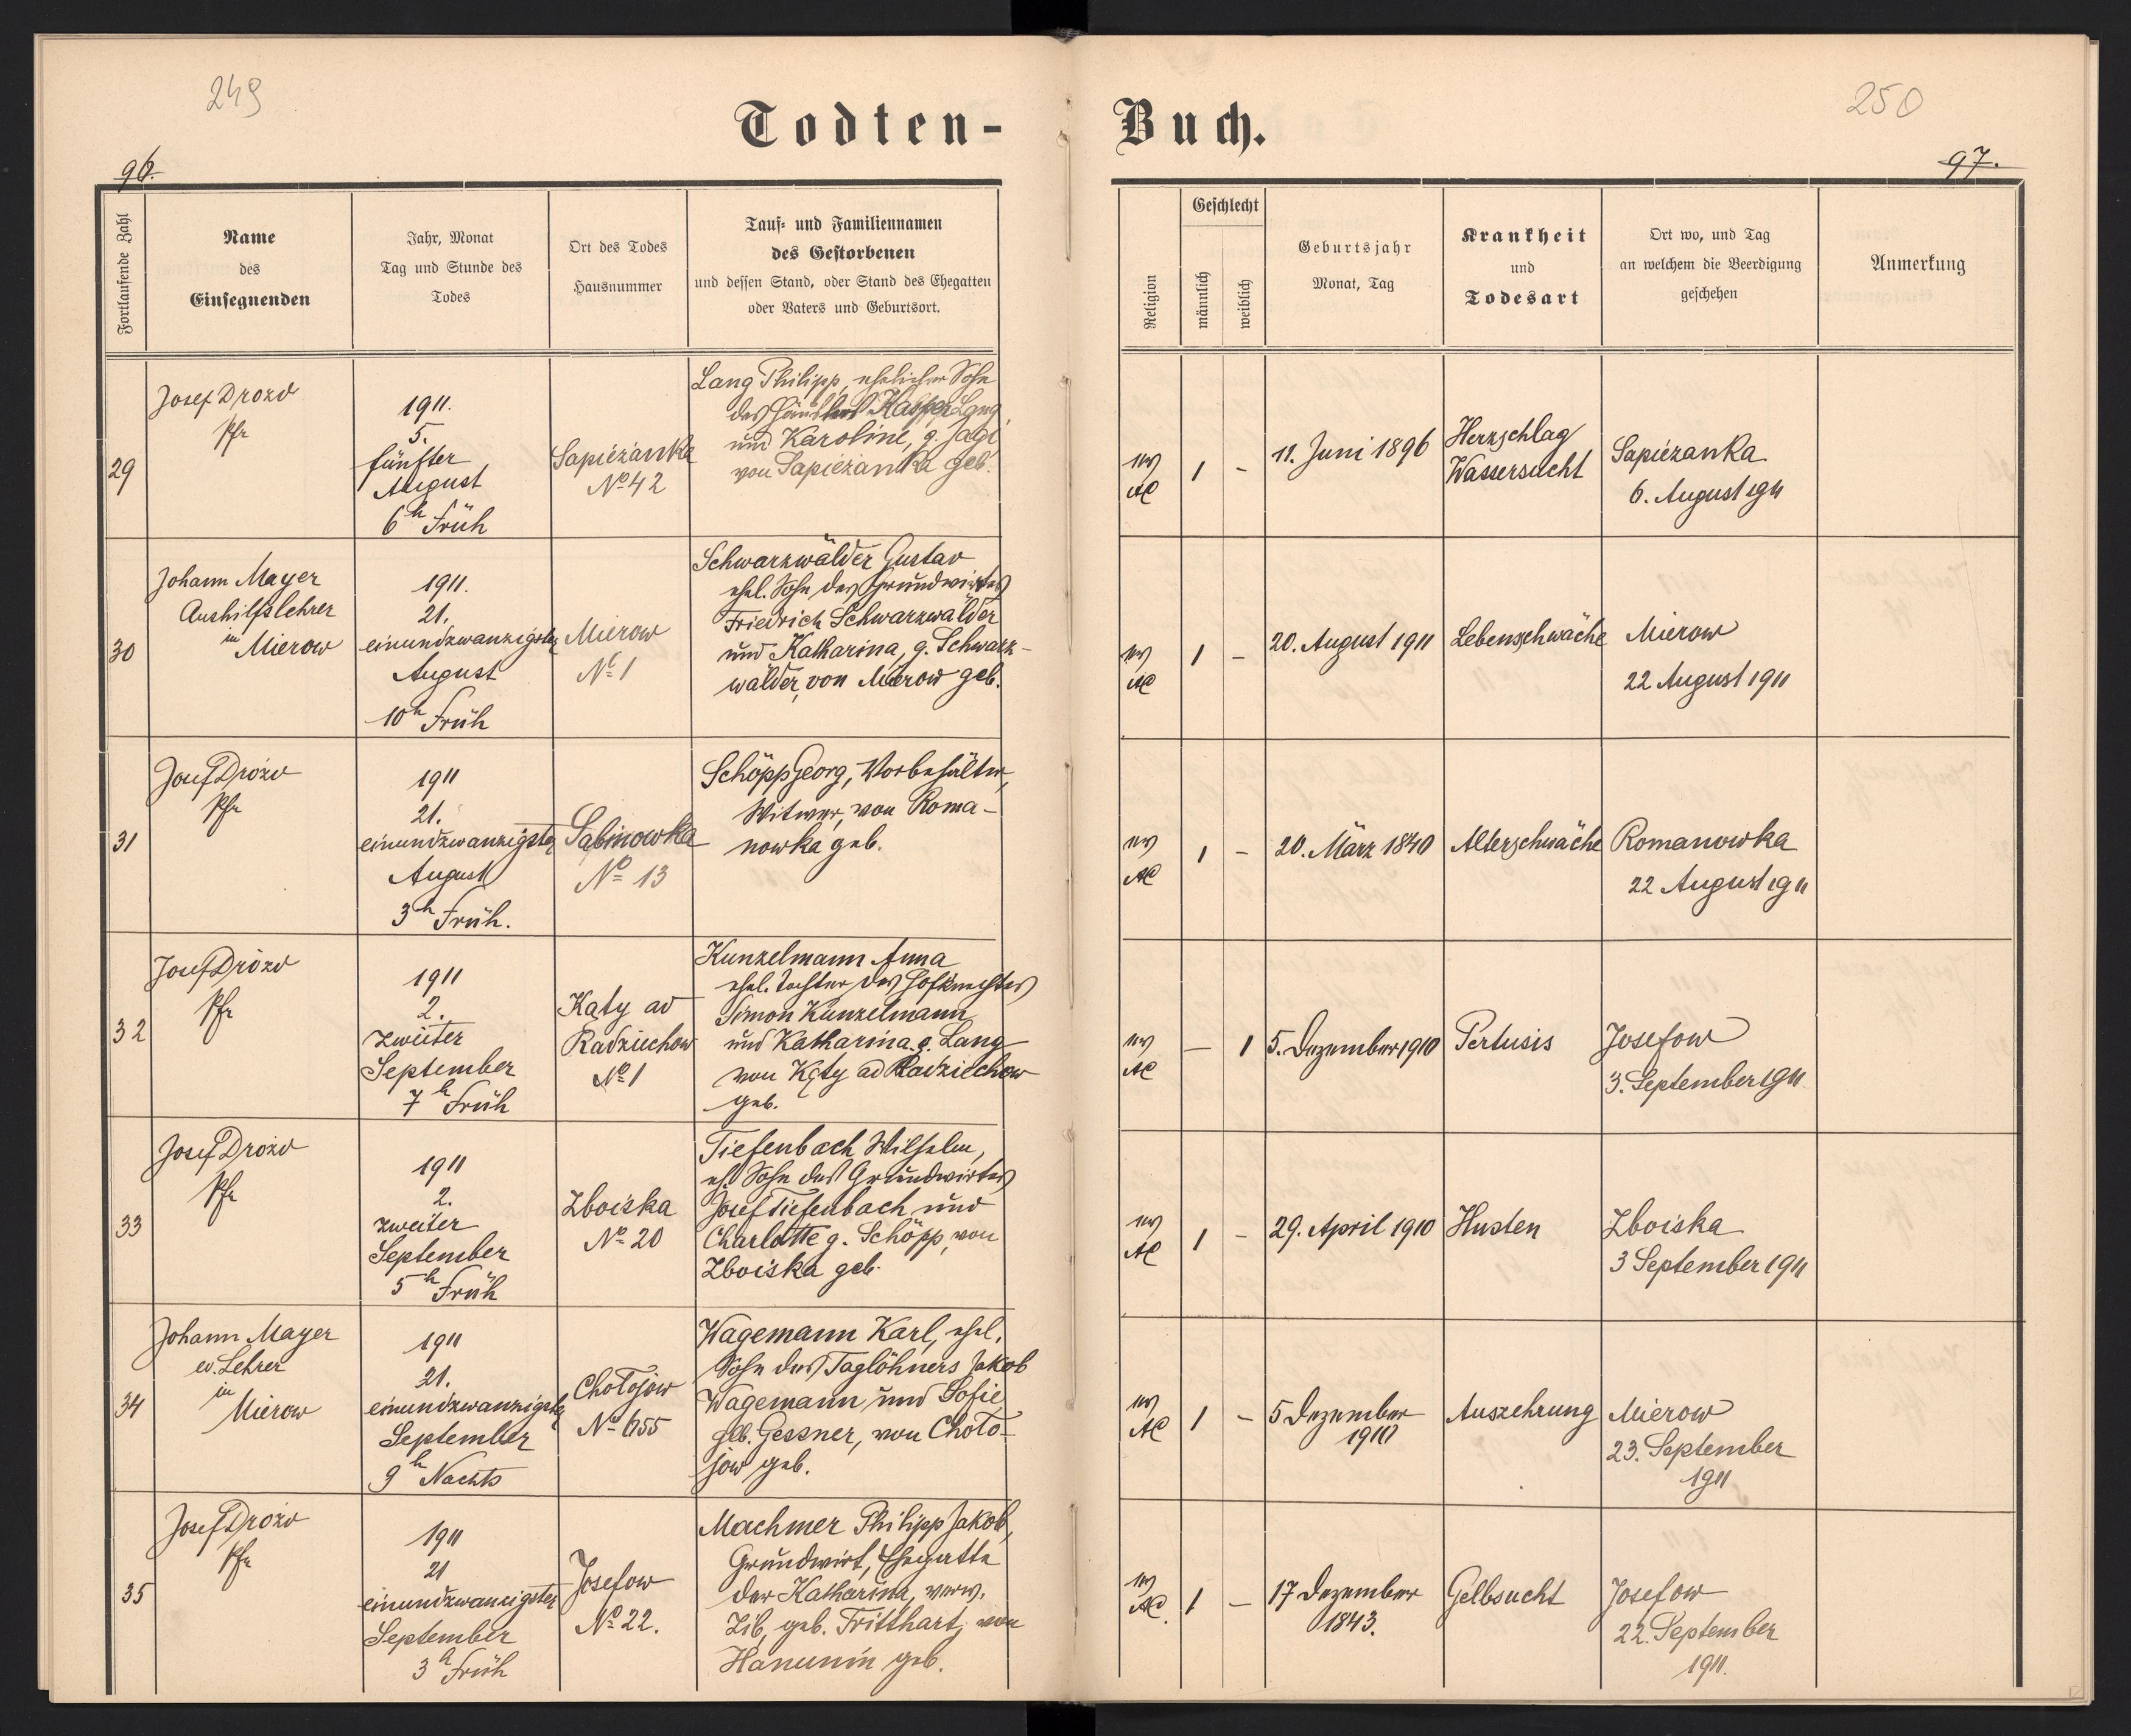 249
250
Todten-
Buch.
96.
97.
Fortlaufende Zahl
Name
des
Einsegnenden
Jahr, Monat
Tag und Stunde des
Todes
Ort des Todes
Hausnummer
Tauf- und Familiennamen
des Gestorbenen
und dessen Stand, oder Stand des Ehegatten
oder Vaters und Geburtsort.
Religion
Geschlecht
männlich
weiblich
Geburtsjahr
Monat, Tag
Krankheit
und
Todesart
Ort wo, und Tag
an welchem die Beerdigung
geschehen
Anmerkung
29
Josef Drozd
Pfr
1911.
5.
fünfter
August
6h Früh
Sapiezanka
No 42
Lang Philipp, ehelicher Sohn
des Häuslers Kasper Lang
und Karoline, g. Jagi
von Sapiezanka geb.
ev
AC
1
-
11. Juni 1896
Herzschlag
Wassersucht
Sapiezanka
6. August 1911
30
Johann Mayer
Aushilfslehrer
in
Mierow
1911.
21.
einundzwanzigster
August
10h Früh
Mierow
No 1
Schwarzwälder Gustav
ehel. Sohn des Grundwirtes
Friedrich Schwarzwälder
und Katharina, g. Schwarz-
wälder, von Mierow geb.
ev
AC
1
-
20. August 1911
Lebenschwäche
Mierow
22 August 1911
31
Josef Drozd
Pfr
1911
21.
einundzwanzigster
August
3h Früh.
Sabinowka
No 13
Schöpp Georg, Vorbehälter,
Witwer, von Roma-
nowka geb.
ev
AC
1
-
20. März 1840
Alterschwäche
Romanowka
22 August 1911
32
Josef Drozd
Pfr
1911
2.
zweiter
September
7h Früh
Kąty ad
Radziechow
No 1
Kunzelmann Anna
ehel. Tochter des Hofknechtes
Simon Kunzelmann
und Katharina g. Lang
von Kąty ad Radziechow
geb.
ev
AC
-
1
5. Dezember 1910
Pertusis
Josefow
3. September 1911
33
Josef Drozd
Pfr
1911
2.
zweiter
September
5h Früh
Zboiska
No 20
Tiefenbach Wilhelm,
eh. Sohn des Grundwirtes
Josef Tiefenbach und
Charlotte g. Schöpp, von
Zboiska geb.
ev
AC
1
-
29. April 1910
Husten
Zboiska
3 September 1911
34
Johann Mayer
ev. Lehrer
in
Mierow
1911
21.
einundzwanzigster
September
9h Nachts
Chołojow
No 655
Wagemann Karl, ehel.
Sohn des Taglöhners Jakob
Wagemann und Sofie
geb. Gessner, von Choło-
jow geb.
ev
AC
1
-
5 Dezember
1910
Auszehrung
Mierow
23. September
1911
35
Josef Drozd
Pfr
1911
21
einundzwanzigster
September
3h Früh
Josefow
No 22.
Machmer Philipp Jakob,
Grundwirt, Ehegatte
der Katharina, verw.
Zib, geb. Fritthart, von
Hanunin geb.
ev
AC.
1
-
17 Dezember
1843.
Gelbsucht
Josefow
22. September
1911.